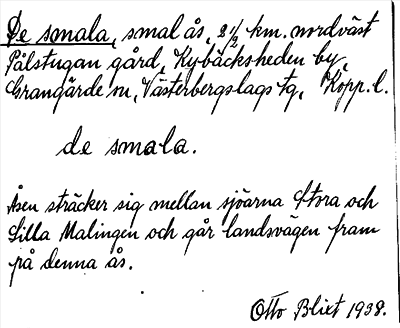 De smala, smal ås, 2 1/2 km. nordväst
Pålstugan gård, Kybäcksheden by,
Grangärde sn, Västerbergslags tg, Kopp. l.
de smala.
Åsen sträcker sig mellan sjöarna Stora och
Lilla Malingen och går landsvägen fram
på denna ås.
Otto Blixt 1938.